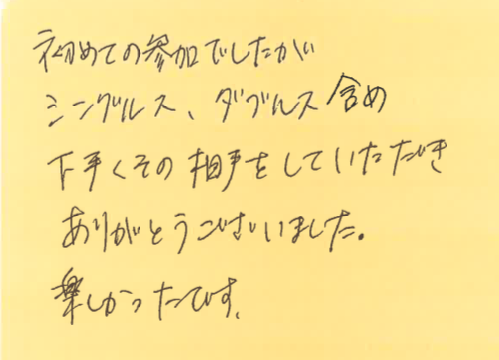 初めての参加でしたが
シングルス、ダブルス含め
下手くその相手をしていただき
ありがとうございました。
楽しかったです。